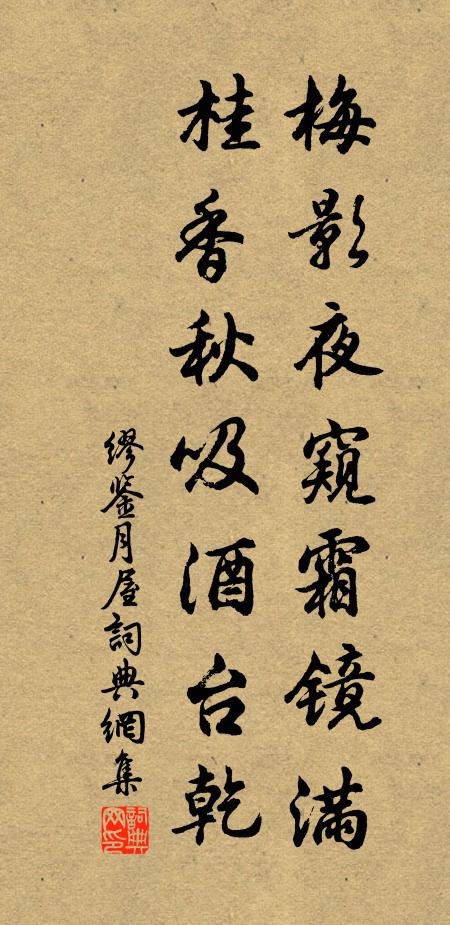 梅影夜窺霜镜滿
桂香秋吸酒台乾
缪鉴月屋詞典網集
詞典网印